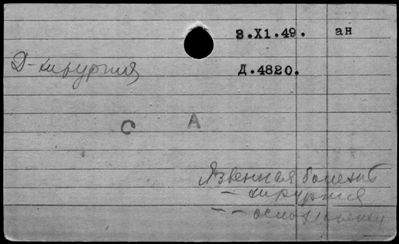 3.XI.49. ан
Д-хирургия
Д.4820.
С А
Язвенная болезнь
– хирургия
– – осложнения